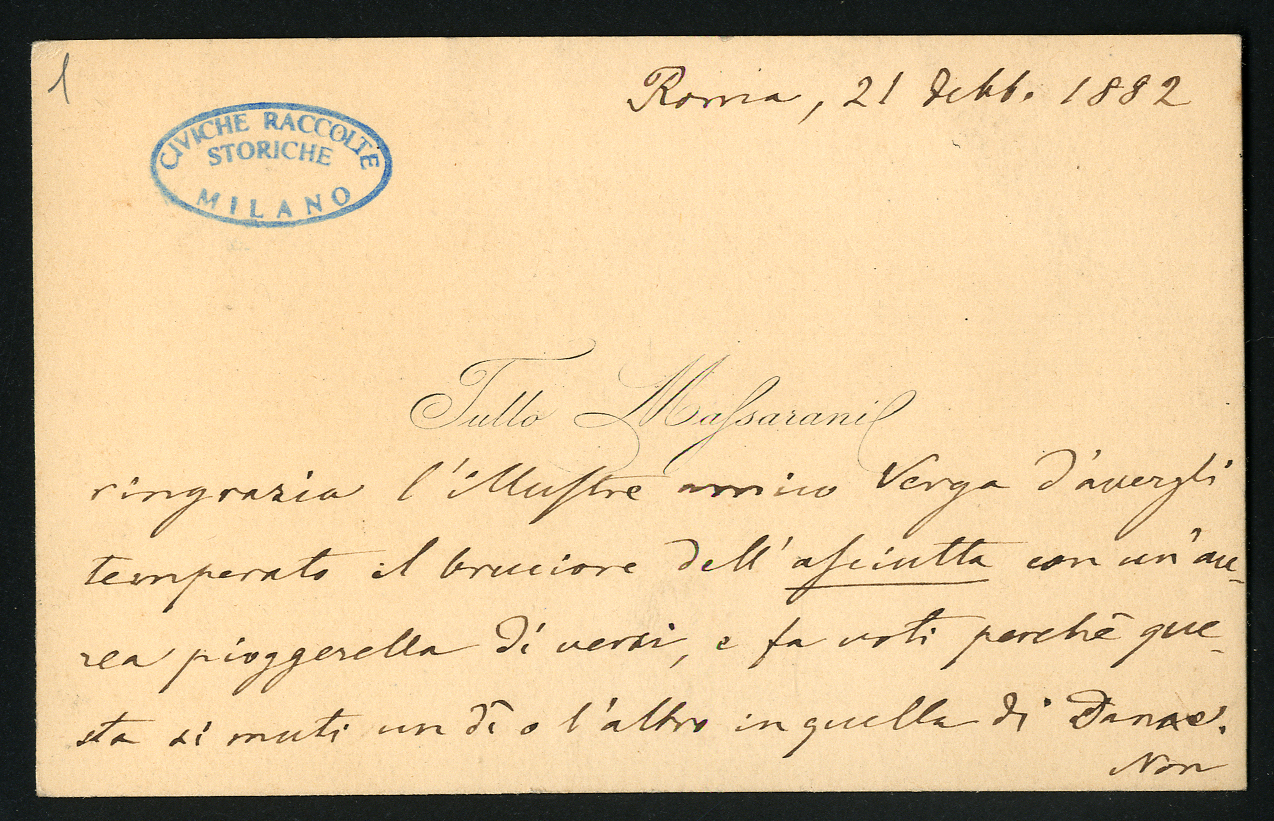 1
Roma, 21 Febb. 1882
CIVICHE RACCOLTE
STORICHE
MILANO
Tullo Massarani
ringrazia l'illustre amico Verga d'avergli
temperato il bruciore dell'asciutta con un'au-
rea pioggerella di versi, e fa voti perchè que-
sta si muti un dì o l'altro in quella di Danae.
Non